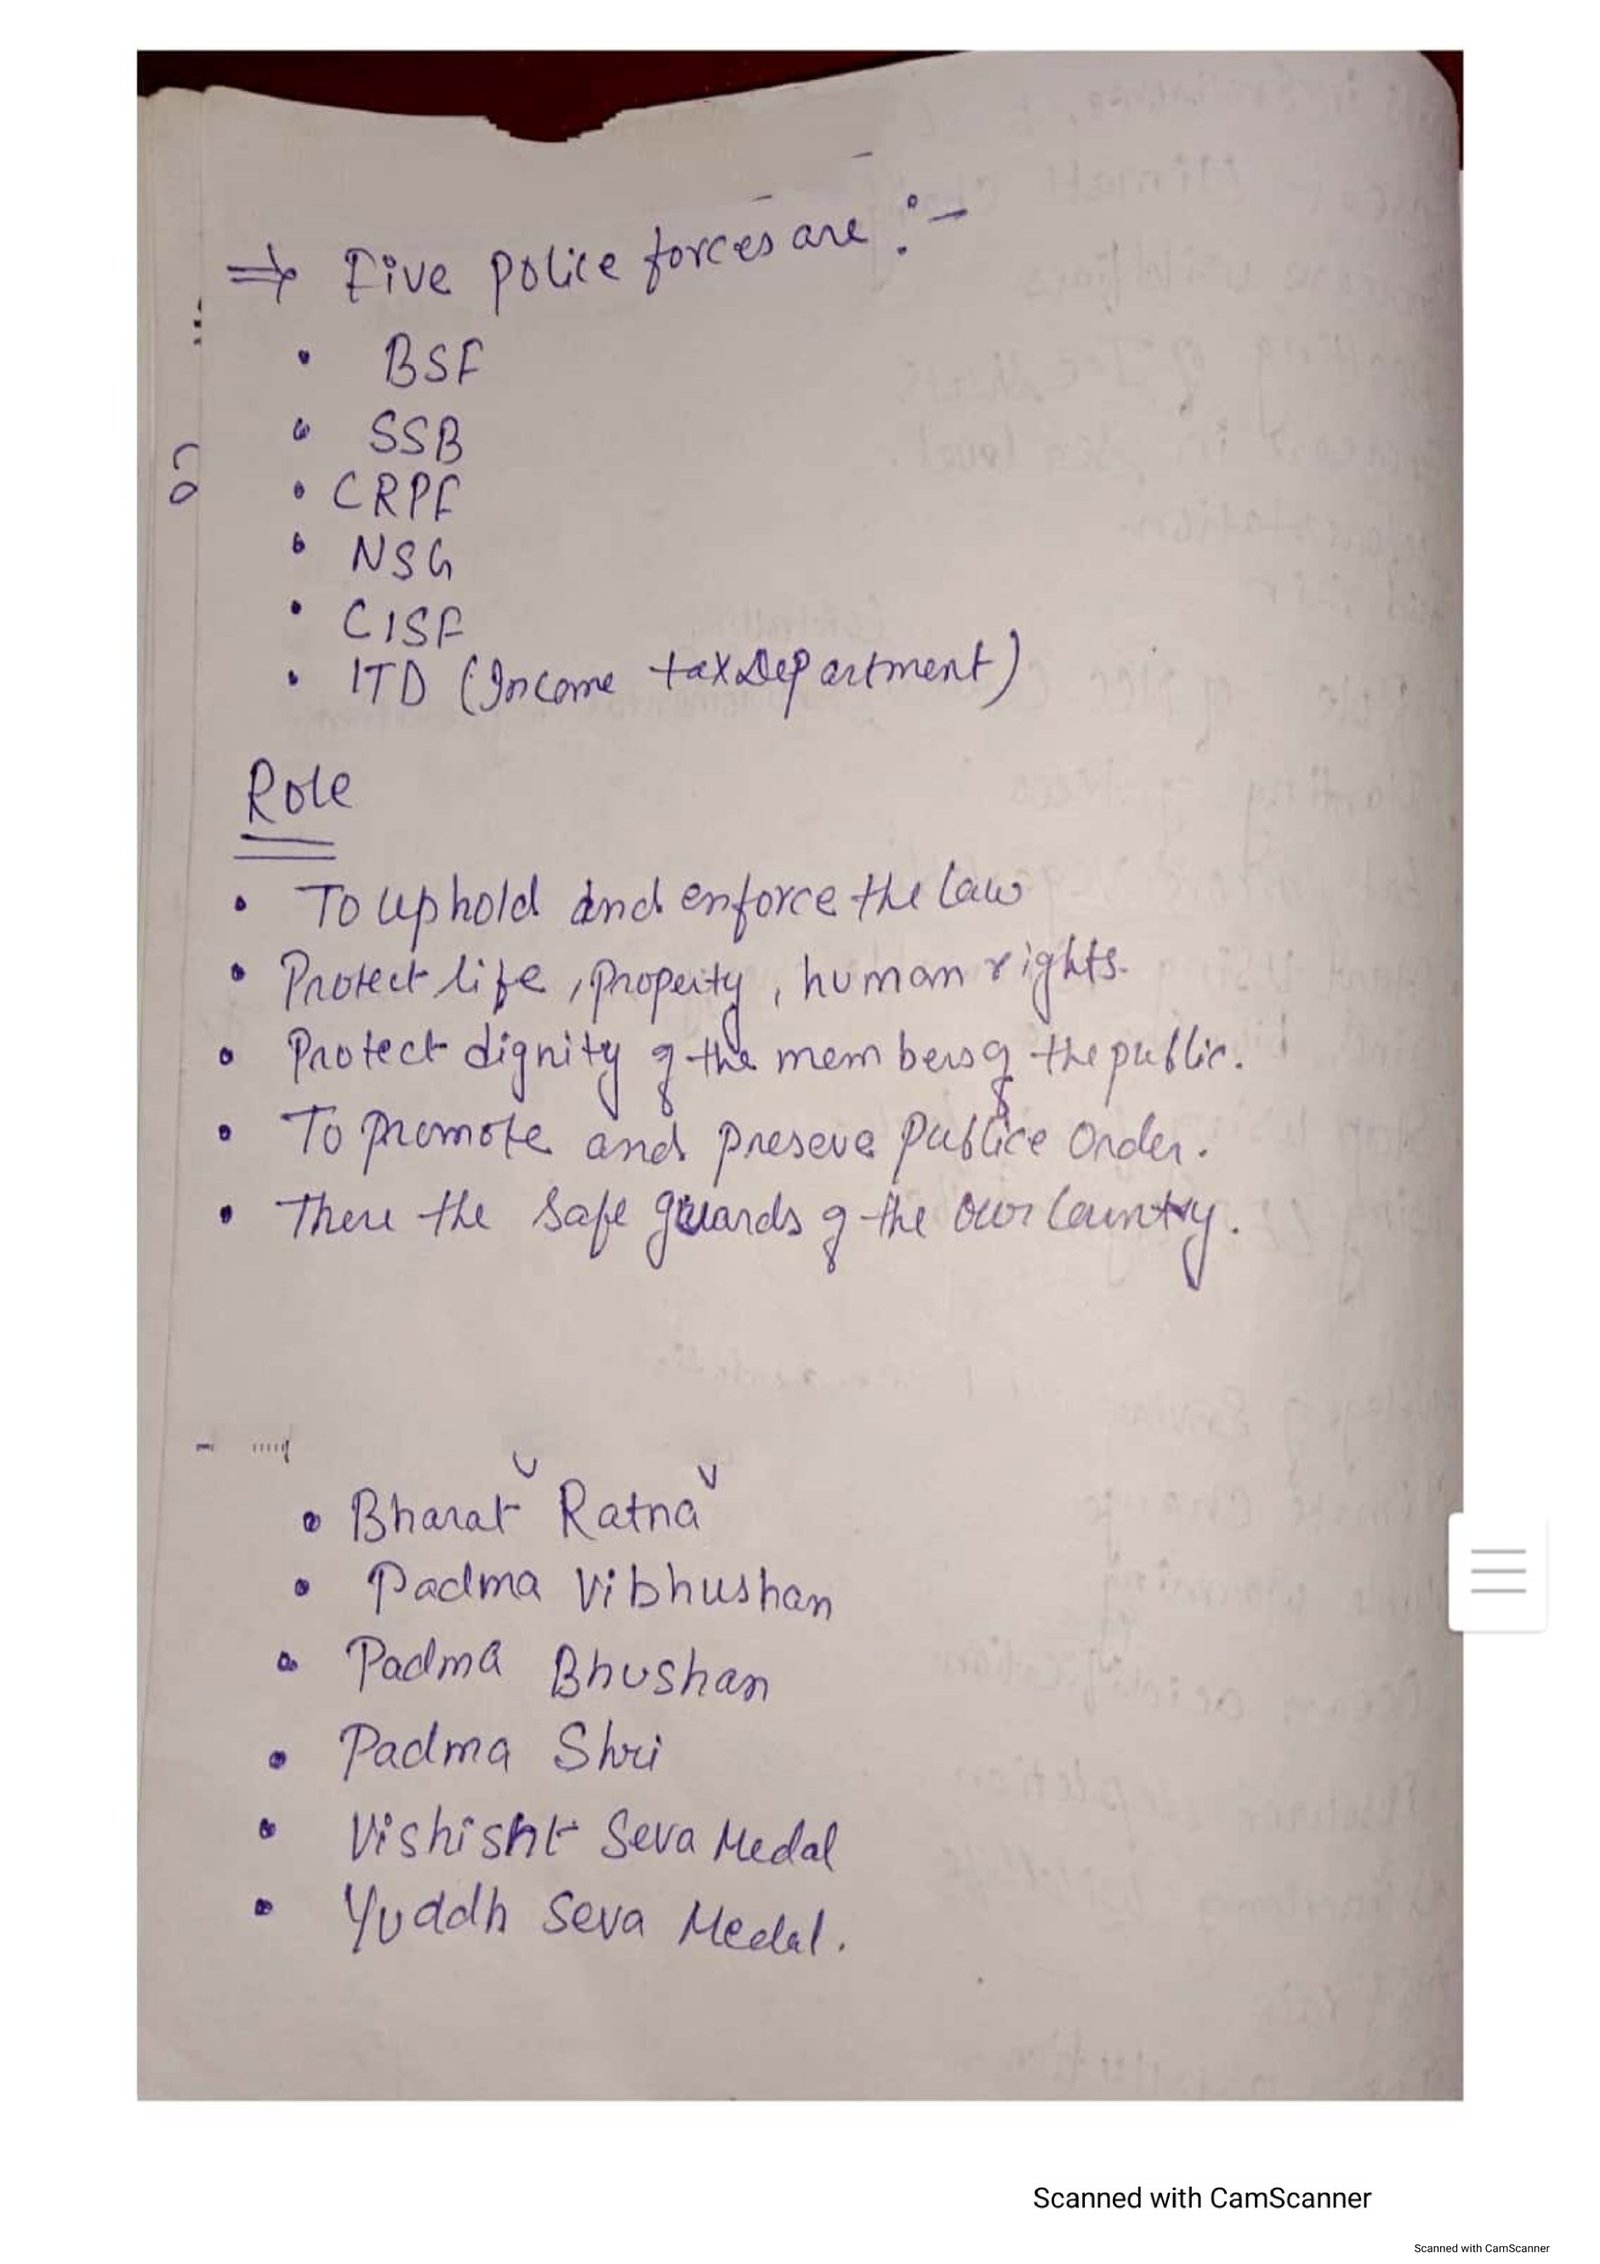 ⇒ Five police forces are :-
• BSF
• SSB
• CRPF
• NSG
• CISF
• ITD (Income tax Department)
Role
• To uphold and enforce the law
• Protect life, property, human rights.
• Protect dignity of the members of the public.
• To promote and preseve publice order.
• There the safe guards of the our country.
• Bharat Ratna
• Padma Vibhushan
• Padma Bhushan
• Padma Shri
• Vishisht Seva Medal
• Yuddh Seva Medal.
Scanned with CamScanner
Scanned with CamScanner